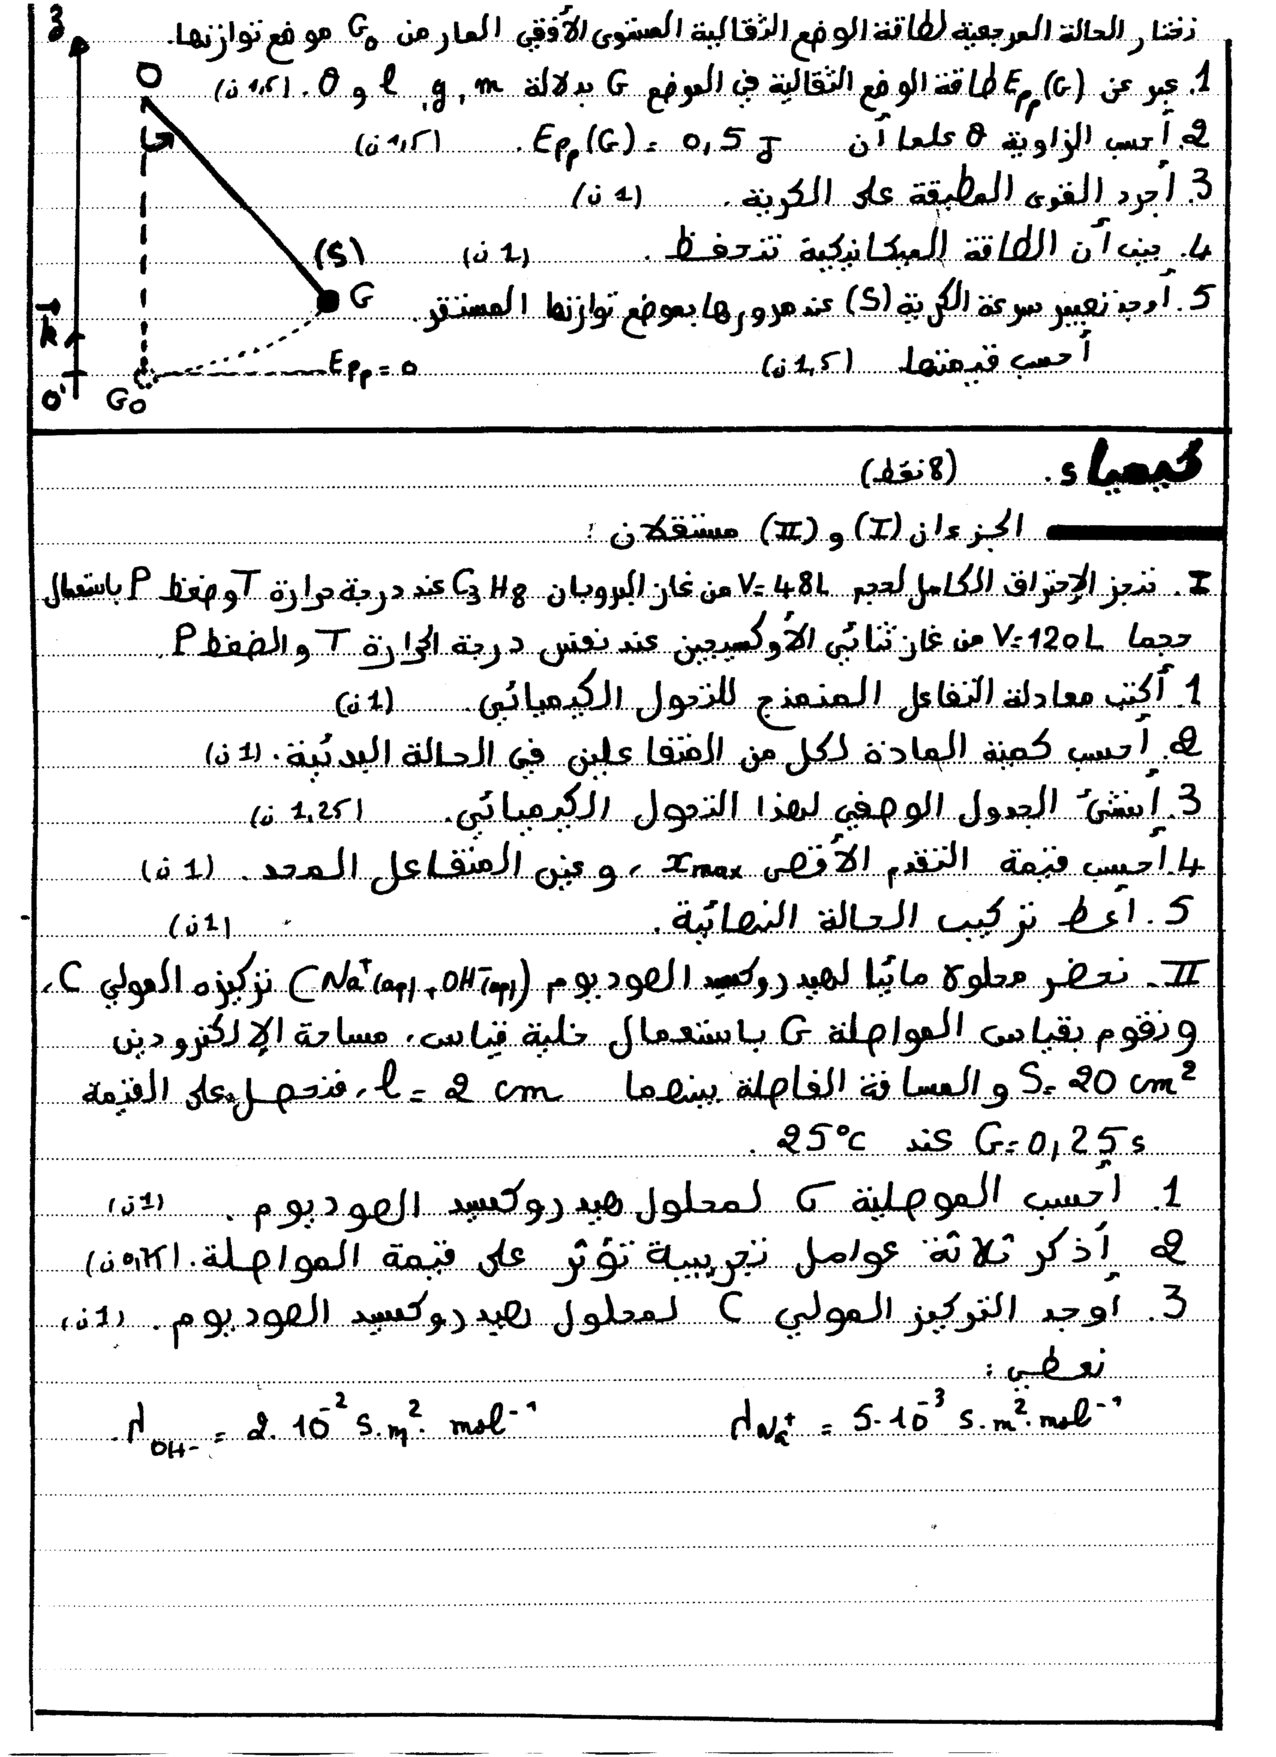 نختار الحالة المرجعية لطاقة الوضع الثقالية المستوى الأفقي المار من G₀ موضع توازنها.
1. عبر عن Epp(G) طاقة الوضع الثقالية في الموضع G بدلالة m, g, l و θ. (1,5 ن)
2. أحسب الزاوية θ علما أن Epp(G) = 0,5 J . (1,5 ن)
3. أجرد القوى المطبقة على الكرية . (1 ن)
4. بين أن الطاقة الميكانيكية تنحفظ . (1 ن)
5. أوجد تعبير سرعة الكرية (S) عند مرورها بموضع توازنها المستقر.
أحسب قيمتها (1,5 ن)
z
O
(S)
G
k
Epp = 0
O'
G₀
كيمياء. (8 نقط)
الجزءان (I) و (II) مستقلان :
I. ننجز الإحتراق الكامل لحجم V=48L من غاز البروبان C₃H₈ عند درجة حرارة T وضغط P باستعمال
حجما V=120L من غاز ثنائي الأوكسيجين عند نفس درجة الحرارة T والضغط P.
1. أكتب معادلة التفاعل المنمذج للتحول الكيميائي. (1 ن)
2. أحسب كمية المادة لكل من المتفاعلين في الحالة البدئية. (1 ن)
3. أنشئ الجدول الوصفي لهذا التحول الكيميائي. (1,25 ن)
4. أحسب قيمة التقدم الأقصى xmax ، وعين المتفاعل المحد . (1 ن)
5. أعط تركيب الحالة النهائية . (1 ن)
II. نحضر محلولا مائيا لهيدروكسيد الصوديوم (Na⁺(aq) + OH⁻(aq)) تركيزه المولي C.
ونقوم بقياس المواصلة G باستعمال خلية قياس، مساحة الإلكترودين
S= 20 cm² والمسافة الفاصلة بينهما l = 2 cm ، فنحصل على القيمة
G= 0,25 s عند 25°C .
1. أحسب الموصلية σ لمحلول هيدروكسيد الصوديوم . (1 ن)
2. أذكر ثلاثة عوامل تجريبية تؤثر على قيمة المواصلة. (0,75 ن)
3. أوجد التركيز المولي C لمحلول هيدروكسيد الصوديوم . (1 ن)
نعطي :
λNa⁺ = 5·10⁻³ S.m².mol⁻¹ λOH⁻ = 2·10⁻² S.m².mol⁻¹ .